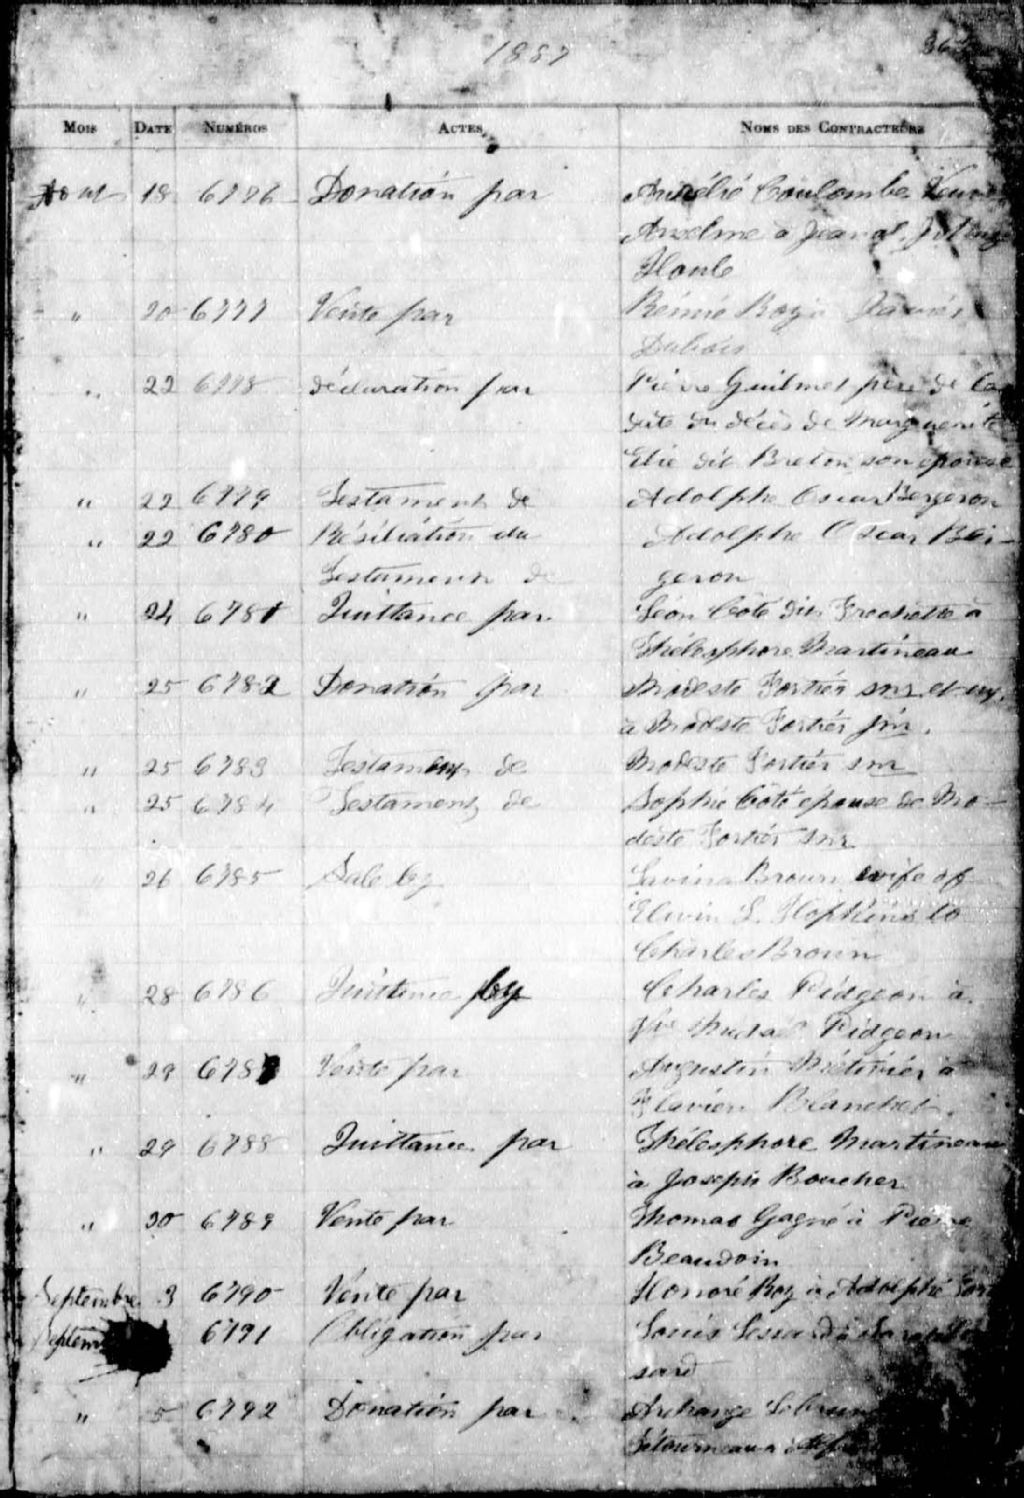 1887
MOIS DATE NUMÉROS ACTES NOMS DES CONTRACTEURS
Aout 18 6776 Donation par Aurélie Coulombe Veuve
Anselme à Jean
Houle
" 20 6777 Vente par Rémie Roy à
Dubois
" 22 6778 déclaration par Pierre Guilmet père de la
date du décès de Marguerite
Elie dit Breton son épouse
" 22 6779 Testament de Adolphe Oscar Bergeron
" 22 6780 Résiliation du Adolphe Oscar Ber-
Testament de geron
" 24 6781 Quittance par Léon Côté dit Frechette à
Thélesphore Martineau
" 25 6782 Donation par Modeste Fortier snr et ux.
à Modeste Fortier jnr.
" 25 6783 Testament de Modeste Fortier snr
" 25 6784 Testament de Sophie Côté épouse de Mo-
deste Fortier snr
" 26 6785 Sale by Lavina Brown wife of
Elwin L. Hopkins to
Charles Brown
" 28 6786 Quittance by Charles Pidgeon à
Pidgeon
" 29 6787 Vente par Augustin Métivier à
Flavien Blanchet.
" 29 6788 Quittance par Thélesphore Martineau
à Joseph Boucher
" 30 6789 Vente par Thomas Gagné à Pierre
Beaudoin
Septembre 3 6790 Vente par Honoré Roy à Adolphe
Septem 6791 Obligation par Louis Lessard à
sard
" 5 6792 Donation par Archange Lebrun
Létourneau à